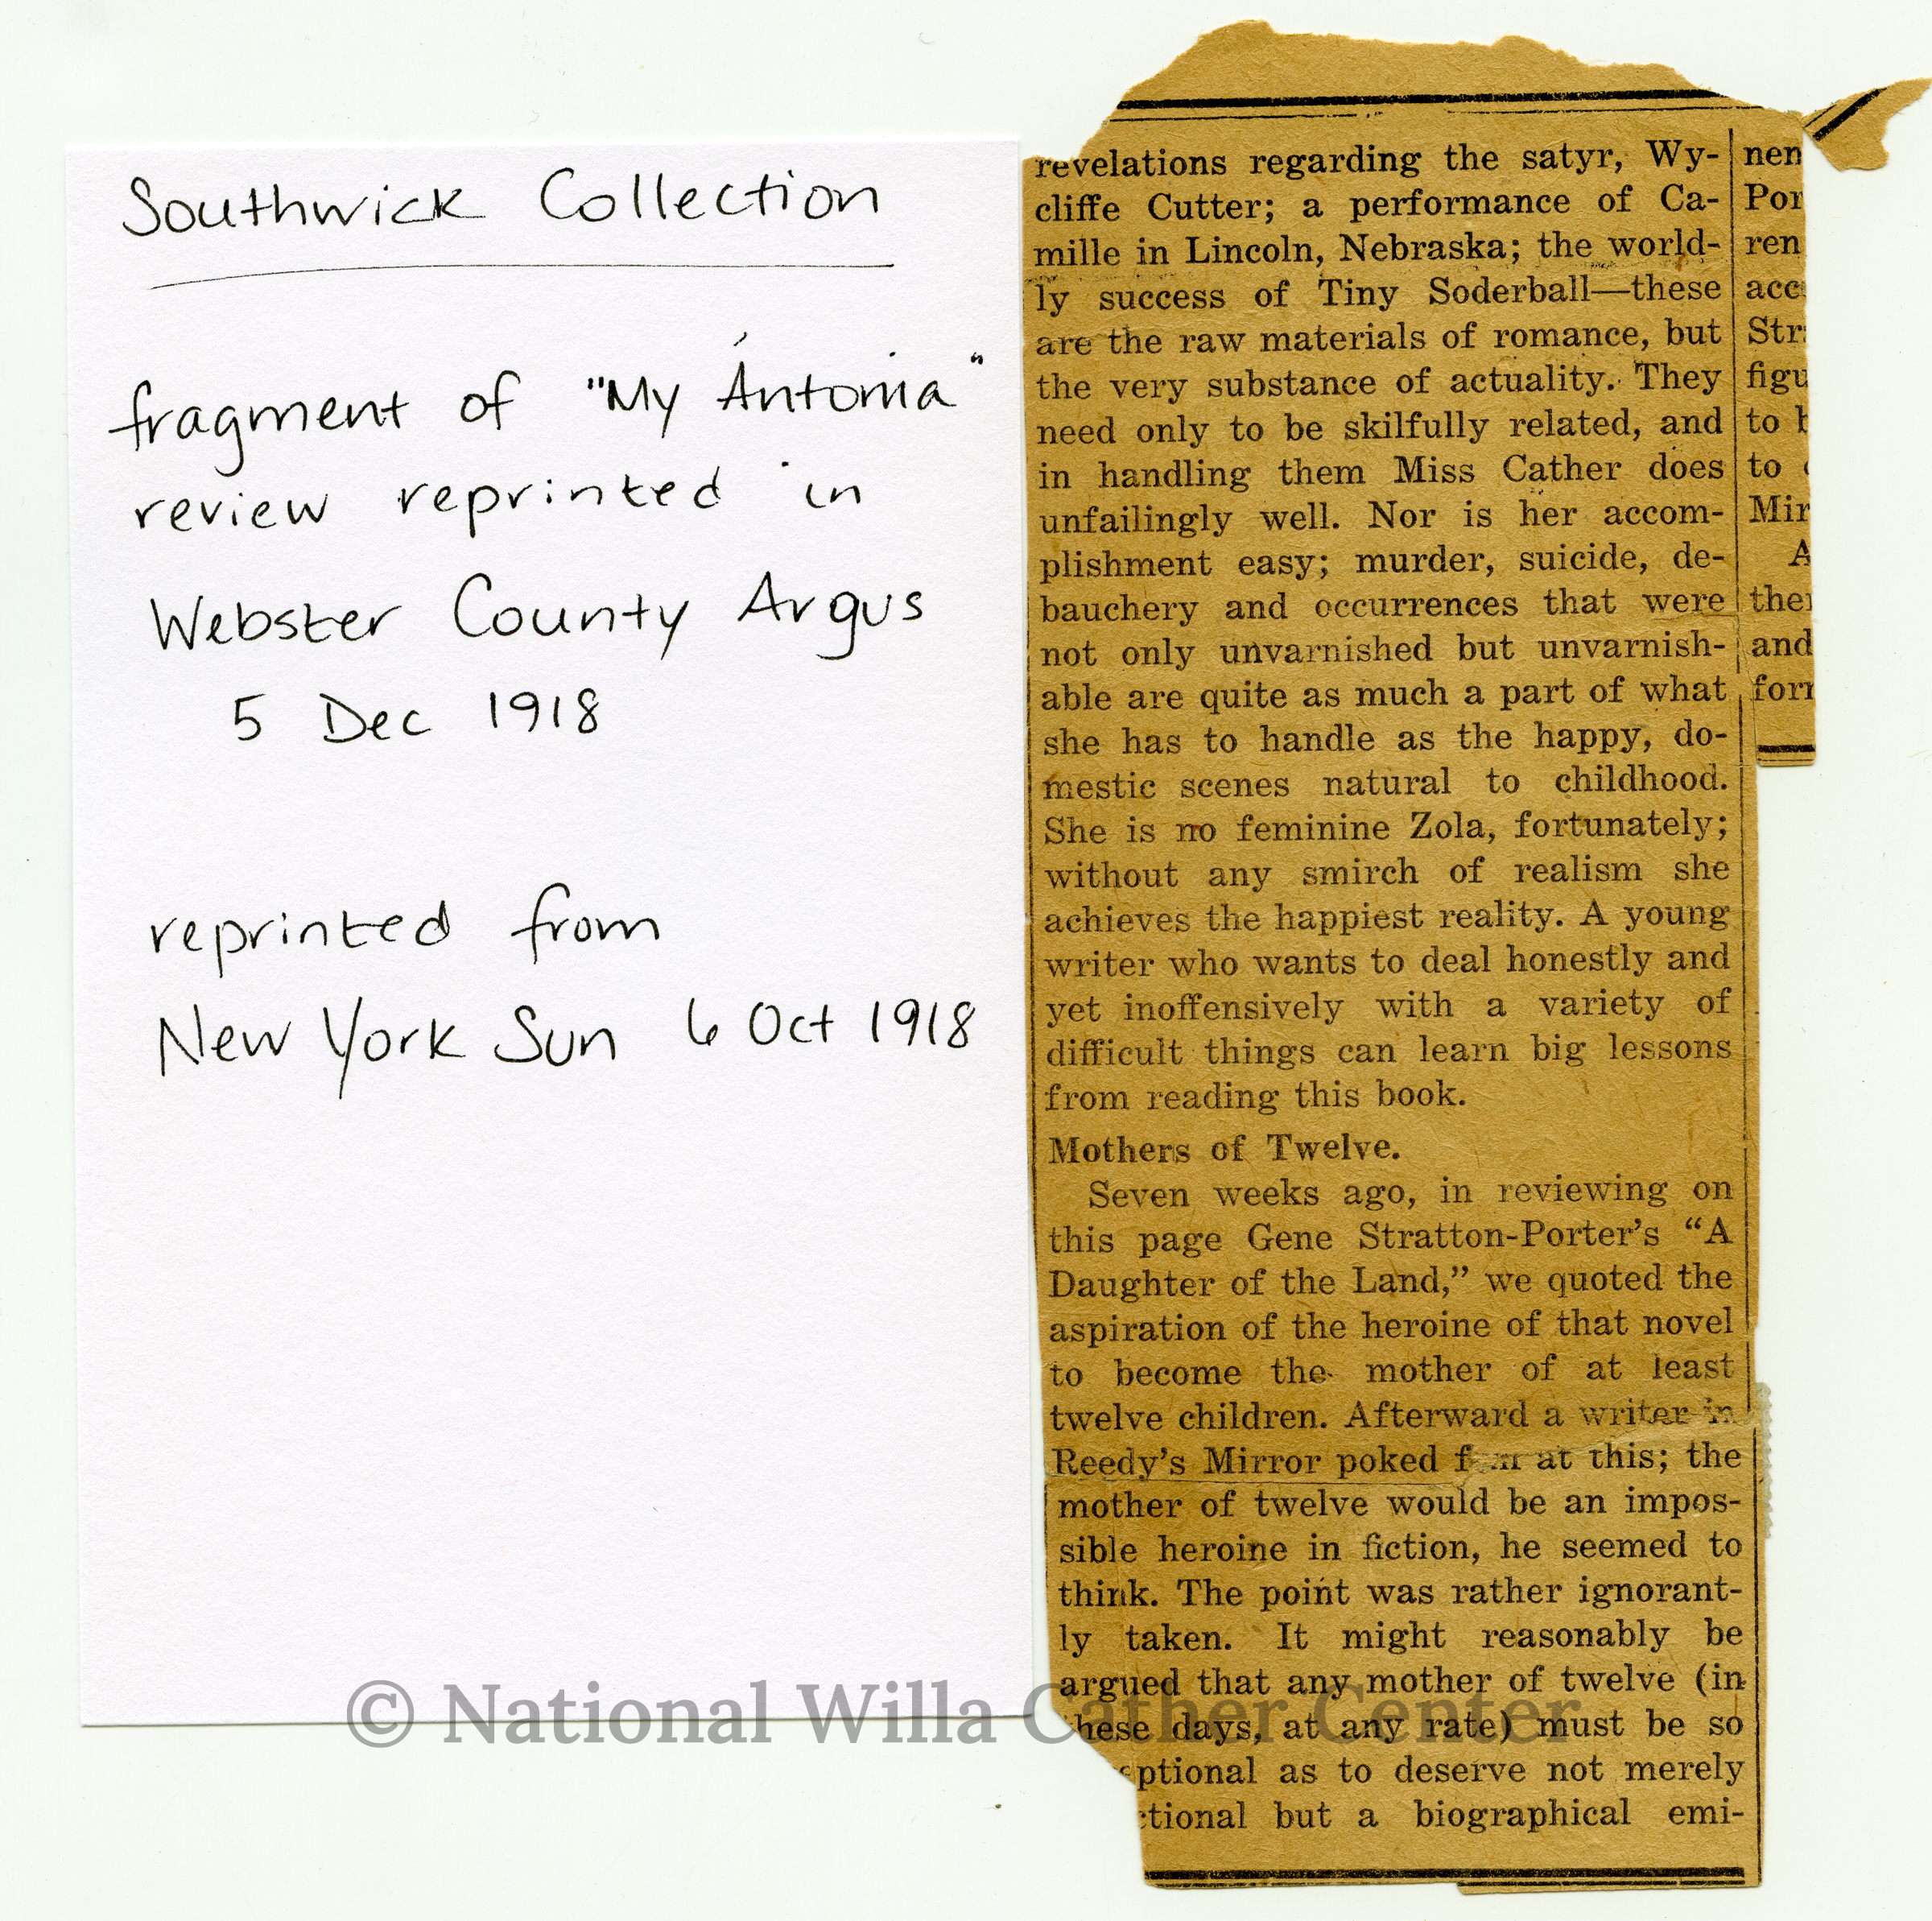 Southwick Collection
fragment of "My Ántonia"
review reprinted in
Webster County Argus
5 Dec 1918
reprinted from
New York Sun 6 Oct 1918
revelations regarding the satyr, Wy-
cliffe Cutter; a performance of Ca-
mille in Lincoln, Nebraska; the world-
ly success of Tiny Soderball—these
are the raw materials of romance, but
the very substance of actuality. They
need only to be skilfully related, and
in handling them Miss Cather does
unfailingly well. Nor is her accom-
plishment easy; murder, suicide, de-
bauchery and occurrences that were
not only unvarnished but unvarnish-
able are quite as much a part of what
she has to handle as the happy, do-
mestic scenes natural to childhood.
She is no feminine Zola, fortunately;
without any smirch of realism she
achieves the happiest reality. A young
writer who wants to deal honestly and
yet inoffensively with a variety of
difficult things can learn big lessons
from reading this book.
Mothers of Twelve.
Seven weeks ago, in reviewing on
this page Gene Stratton-Porter's "A
Daughter of the Land," we quoted the
aspiration of the heroine of that novel
to become the mother of at least
twelve children. Afterward a writer in
Reedy's Mirror poked at this; the
mother of twelve would be an impos-
sible heroine in fiction, he seemed to
think. The point was rather ignorant-
ly taken. It might reasonably be
argued that any mother of twelve (in
these days, at any rate) must be so
eptional as to deserve not merely
ctional but a biographical emi-
nen
Por
ren
acc
Str
figu
to b
to
Mir
A
the
and
for
© National Willa Cather Center